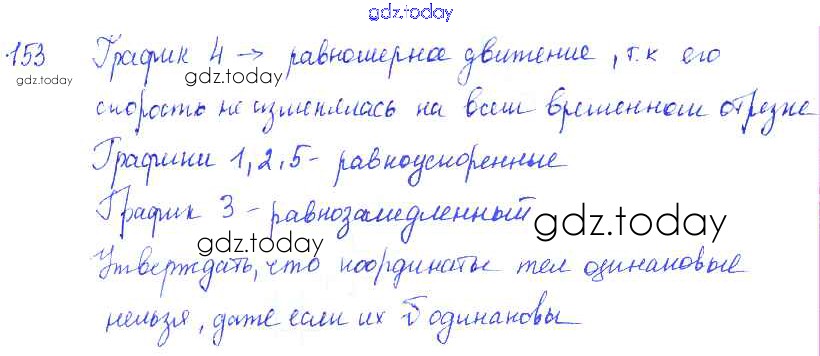 gdz.today
153 График 4 → равномерное движение, т.к его
gdz.today
gdz.today
скорость не изменялась на всем временном отрезке
Графики 1,2,5 - равноускоренные
График 3 - равнозамедленный
gdz.today
gdz.today
Утверждать, что координаты тел одинаковые
нельзя, даже если их v̄ одинаковы